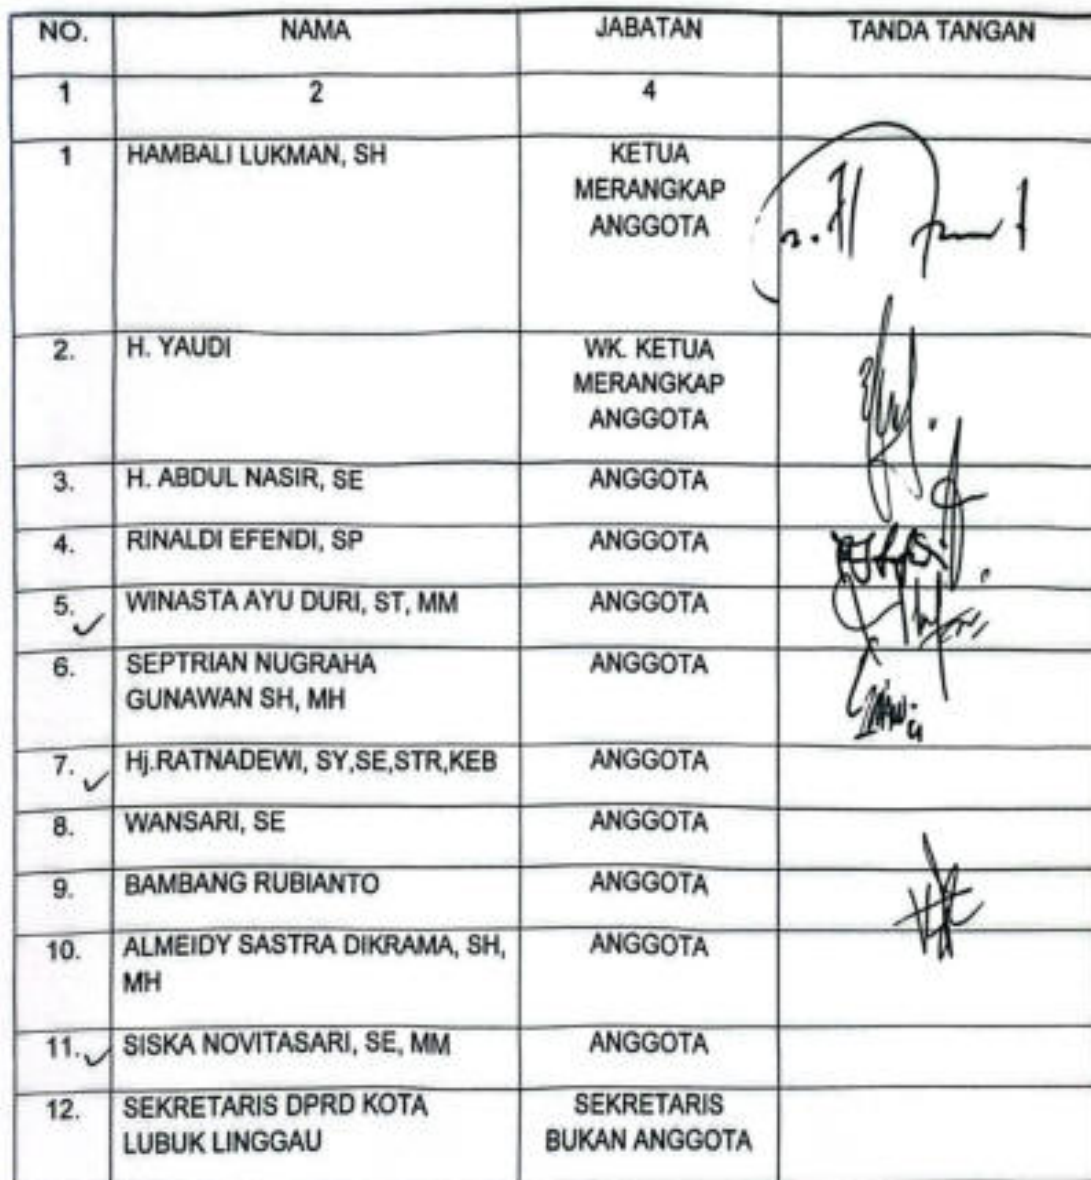 NO. NAMA JABATAN TANDA TANGAN
1 2 4
1 HAMBALI LUKMAN, SH KETUA
MERANGKAP
ANGGOTA
2. H. YAUDI WK. KETUA
MERANGKAP
ANGGOTA
3. H. ABDUL NASIR, SE ANGGOTA
4. RINALDI EFENDI, SP ANGGOTA
5. WINASTA AYU DURI, ST, MM ANGGOTA
6. SEPTRIAN NUGRAHA ANGGOTA
GUNAWAN SH, MH
7. Hj.RATNADEWI, SY,SE,STR,KEB ANGGOTA
8. WANSARI, SE ANGGOTA
9. BAMBANG RUBIANTO ANGGOTA
10. ALMEIDY SASTRA DIKRAMA, SH, ANGGOTA
MH
11. SISKA NOVITASARI, SE, MM ANGGOTA
12. SEKRETARIS DPRD KOTA SEKRETARIS
LUBUK LINGGAU BUKAN ANGGOTA